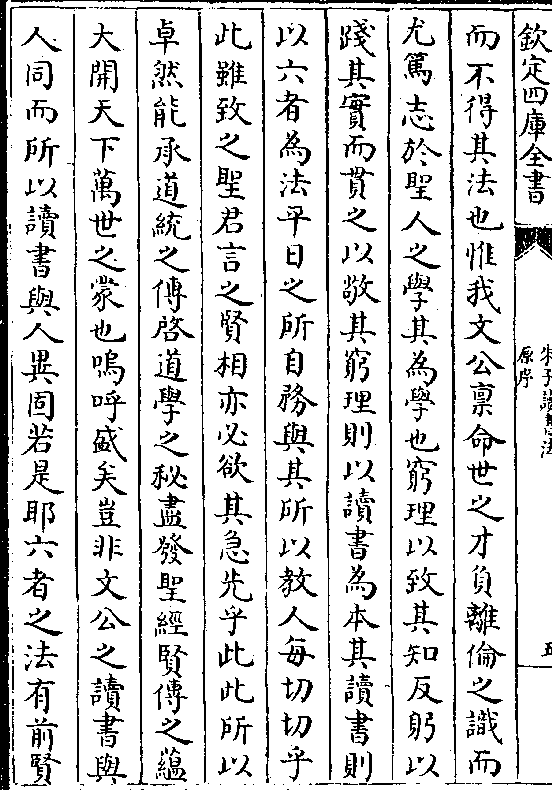 欽定四庫全書
朱子讀書法
原序
五
而不得其法也惟我文公禀命世之才負離倫之識而
尤篤志於聖人之學其為學也窮理以致其知反躬以
踐其實而貫之以敬其窮理則以讀書為本其讀書則
以六者為法平日之所自務與其所以教人每切切乎
此雖致之聖君言之賢相亦必欲其急先乎此此所以
卓然能承道統之傳啓道學之秘盡發聖經賢傳之蘊
大開天下萬世之蒙也嗚呼盛矣豈非文公之讀書與
人同而所以讀書與人異固若是耶六者之法有前賢